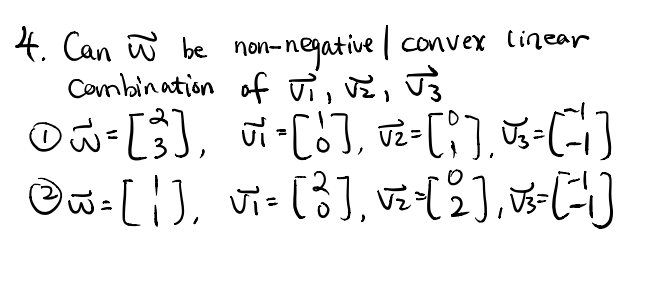 4. Can w⃗ be non-negative | convex linear
combination of v⃗1, v⃗2, v⃗3
① w⃗ = [2 3], v⃗1 = [1 0], v⃗2 = [0 1], v⃗3 = [-1 -1]
② w⃗ = [1 1], v⃗1 = [2 0], v⃗2 = [0 2], v⃗3 = [-1 -1]